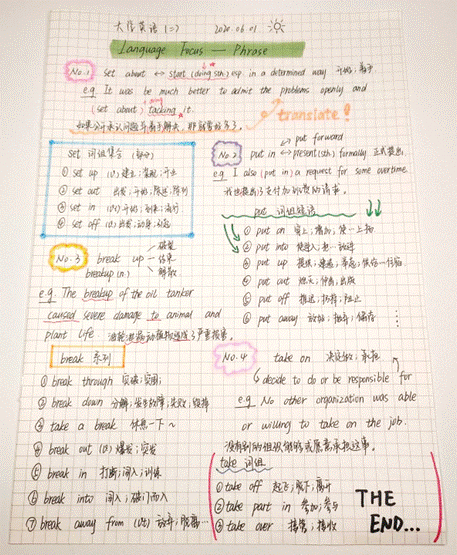 大学英语(二) 2020.06.01
Language Focus — Phrase
No.1 set about ↔ start (doing sth) esp. in a determined way 开始;着手
e.g. It was be much better to admit the problems openly and
(set about) tacking it.
translate!
set 词组集合
① set up (v) 建立;
② set out 出发;开始;陈述;陈列
③ set in
④ set off (v) 出发;动身;引起
No.2 put in ↔ put forward
present(sth) formally 正式提出
e.g. I also (put in) a request for some overtime.
put 词组短语
① put on 穿上;增加;使…上场
② put into 使进入;
③ put up 提供;建造;举起;
④ put out 熄灭;伸出;出版
⑤ put off 推迟;扔掉;阻止
⑥ put away 放好;抛弃;储存
No.3 break up
破裂
结束
解散
breakup(n.)
e.g. The breakup of the oil tanker
caused severe damage to animal and
plant life.
break 系列
① break through 突破;突围;
② break down 分解;发生故障;失败;毁掉
③ take a break 休息一下~
④ break out (vi) 爆发;突发
⑤ break in 打断;闯入;训练
⑥ break into 闯入;破门而入
⑦ break away from (vt) 放弃;脱离…
No.4 take on 决定做;承担
decide to do or be responsible for
e.g. No other organization was able
or willing to take on the job.
没有别的组织能够或愿意承担这事。
take 词组
① take off 起飞;脱下;离开
② take part in 参加;参与
③ take over 接管;接收
THE
END...